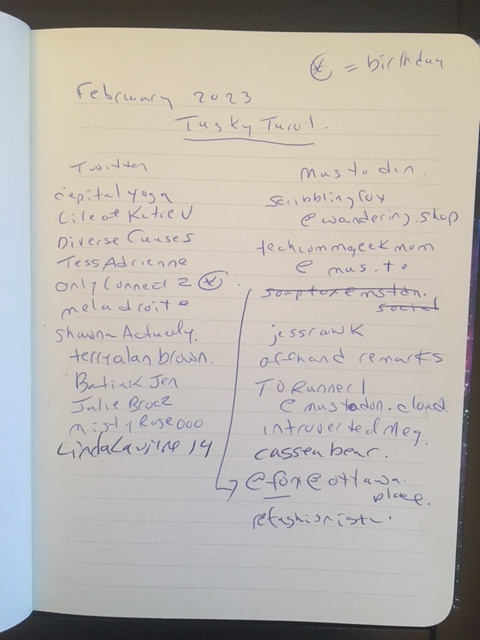 * = birthday
February 2023
Tusky Turoil.
Twitter
capital yoga
Life of Katie V
Diverse Causes
Tess Adrienne
Only Connect 2 *
meladroite
Shawna Actually.
terryalan brown.
Batiak Jen
Julie Bruce
misty Rose 000
Linda Lavigne 14
mastodon.
scribbling fox
@wandering.shop
techcommgeekmom
@ mas.to
jessrawk
offhand remarks
TORunner1
@mastodon.cloud
introverted meg.
cassea bear.
@fox@ottawa.
place.
refashionista.